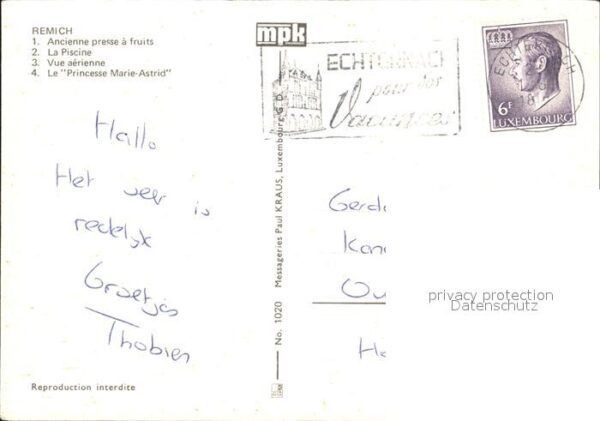 REMICH
1. Ancienne presse à fruits
2. La Piscine
3. Vue aérienne
4. Le "Princesse Marie-Astrid"
mpk
ECHTERNACH
pour vos
Vacances
ECHTERNACH
6F
LUXEMBOURG
Hallo
Het weer is
redelijk
Groetjes
Thobien
No. 1020 Messageries Paul KRAUS, Luxembourg G. D.
Gerd
Kan
Ou
privacy protection
Datenschutz
Ho
Reproduction interdite